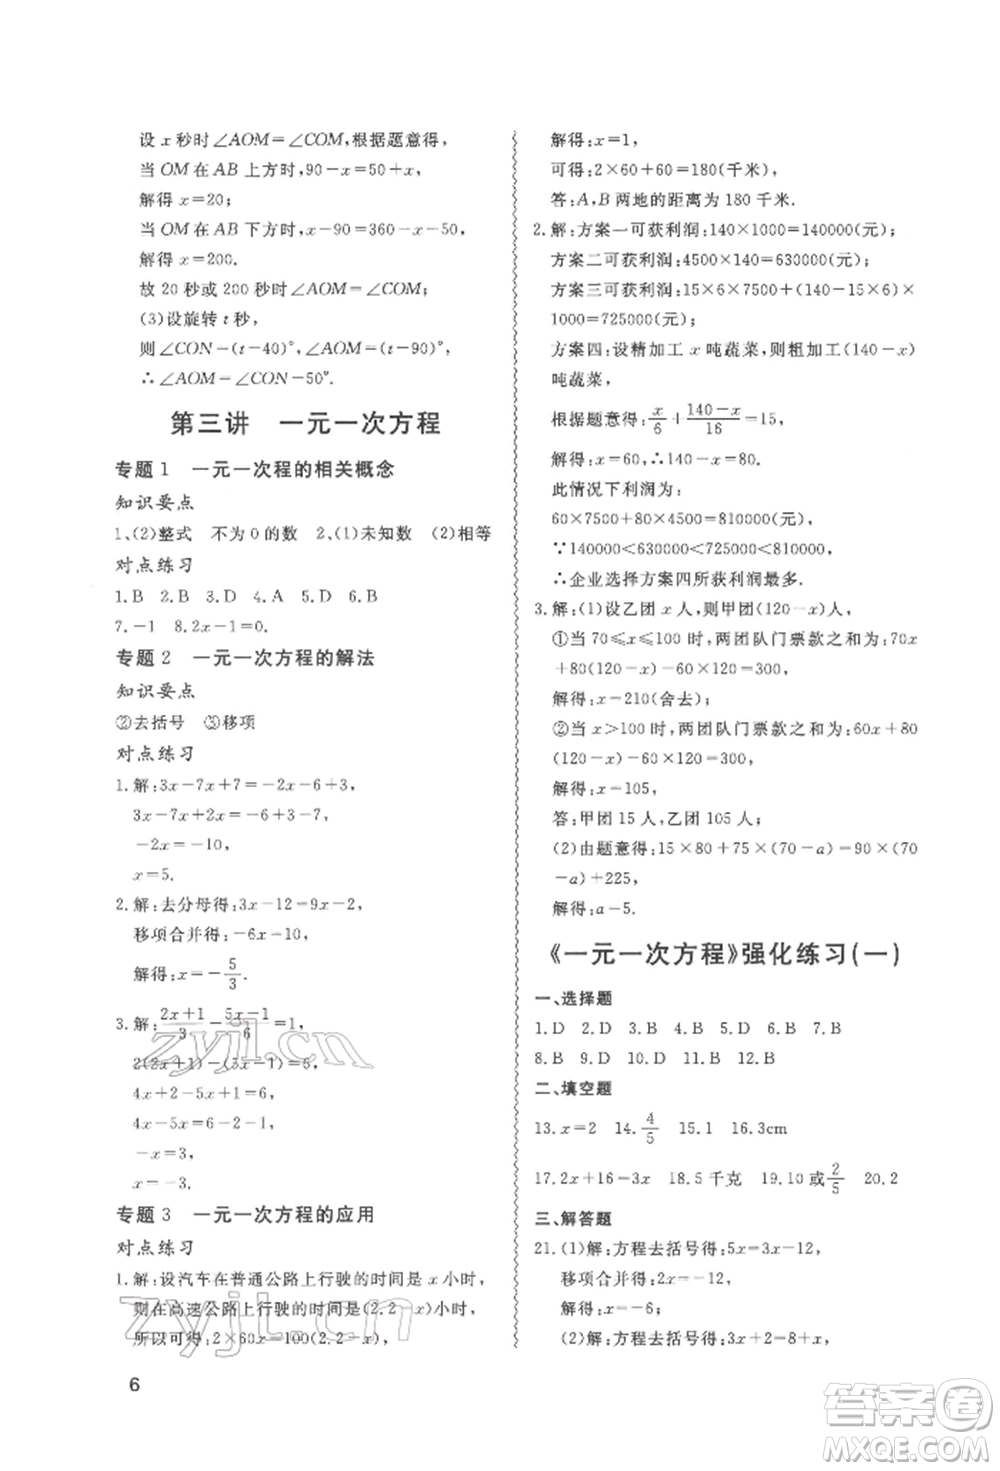 设 x 秒时∠AOM=∠COM,根据题意得,
当 OM 在 AB 上方时,90-x=50+x,
解得 x=20;
当 OM 在 AB 下方时,x-90=360-x-50,
解得 x=200.
故 20 秒或 200 秒时∠AOM=∠COM;
(3)设旋转 t 秒,
则∠CON-(t-40)°,∠AOM=(t-90)°,
∴∠AOM=∠CON-50°.
第三讲 一元一次方程
专题 1 一元一次程的相关概念
知识要点
1.(2)整式 不为 0 的数 2.(1)未知数 (2)相等
对点练习
1.B 2.B 3.D 4.A 5.D 6.B
7.-1 8.2x-1=0.
专题 2 一元一次方程的解法
知识要点
②去括号 ③移项
对点练习
1.解:3x-7x+7=-2x-6+3,
3x-7x+2x=-6+3-7,
-2x=-10,
x=5.
2.解:去分母得:3x-12=9x-2,
移项合并得:-6x-10,
解得:x=-5/3.
3.解:(2x+1)/3-(5x-1)/6=1,
2(2x+1)-(5x-1)=6,
4x+2-5x+1=6,
4x-5x=6-2-1,
-x=3,
x=-3.
专题 3 一元一次方程的应用
对点练习
1.解:设汽车在普通公路上行驶的时间是 x 小时,
则在高速公路上行驶的时间是(2.2-x)小时,
所以可得:2×60x=100(2.2-x),
6
解得:x=1,
可得:2×60+60=180(千米),
答:A,B 两地的距离为 180 千米.
2.解:方案一可获利润:140×1000=140000(元),
方案二可获利润:4500×140=630000(元),
方案三可获利润:15×6×7500+(140-15×6)×
1000=725000(元),
方案四:设精加工 x 吨蔬菜,则粗加工(140-x)
吨蔬菜,
根据题意得:x/6+(140-x)/16=15,
解得:x=60,∴140-x=80.
此情况下利润为:
60×7500+80×4500=810000(元),
∵140000<630000<725000<810000,
∴企业选择方案四所获利润最多.
3.解:(1)设乙团 x 人,则甲团(120-x)人,
①当 70⩽x⩽100 时,两团队门票款之和为:70x
+80(120-x)-60×120=300,
解得:x=210(舍去);
②当 x>100 时,两团队门票款之和为:60x+80
(120-x)-60×120=300,
解得:x=105.
答:甲团 15 人,乙团 105 人;
(2)由题意得:15×80+75×(70-a)=90×(70
-a)+225,
解得:a-5.
《一元一次方程》强化练习(一)
一、选择题
1.D 2.D 3.D 4.A 5.B 6.B 7.B
8.B 9.D 10.B 11.B 12.B
二、填空题
13.x=2 14.4/5 15.1 16.3cm
17.2x+16=3x 18.5 千克 19.10 或2/5 20.2
三、解答题
21.(1)解:方程去括号得:5x=3x-12,
移项合并得:2x=-12,
解得:x=-6;
(2)解:方程去括号得:3x+2=8+x,
zyjl.cn
zyjl.cn
答案圈
MXQE.COM